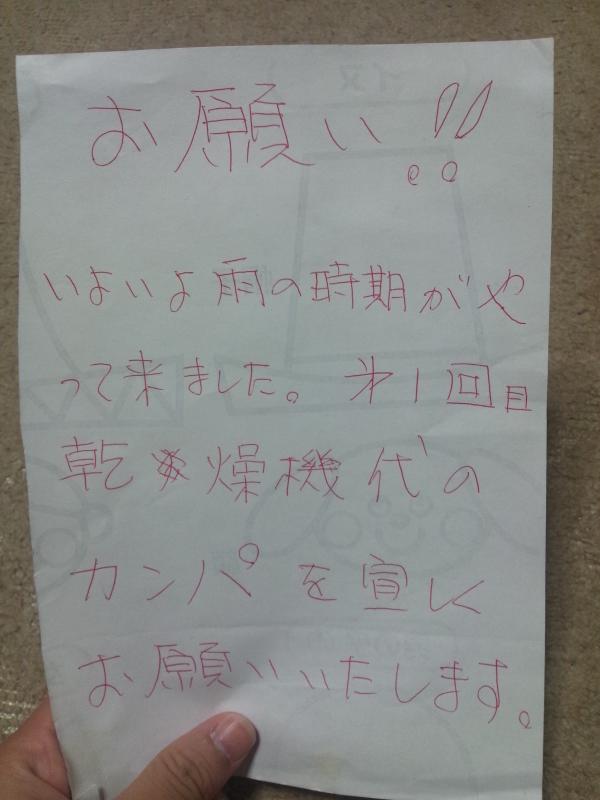 お願い!!
いよいよ雨の時期がや
って来ました。才1回目
乾燥機代の
カンパを宜しく
お願いいたします。
イヌ